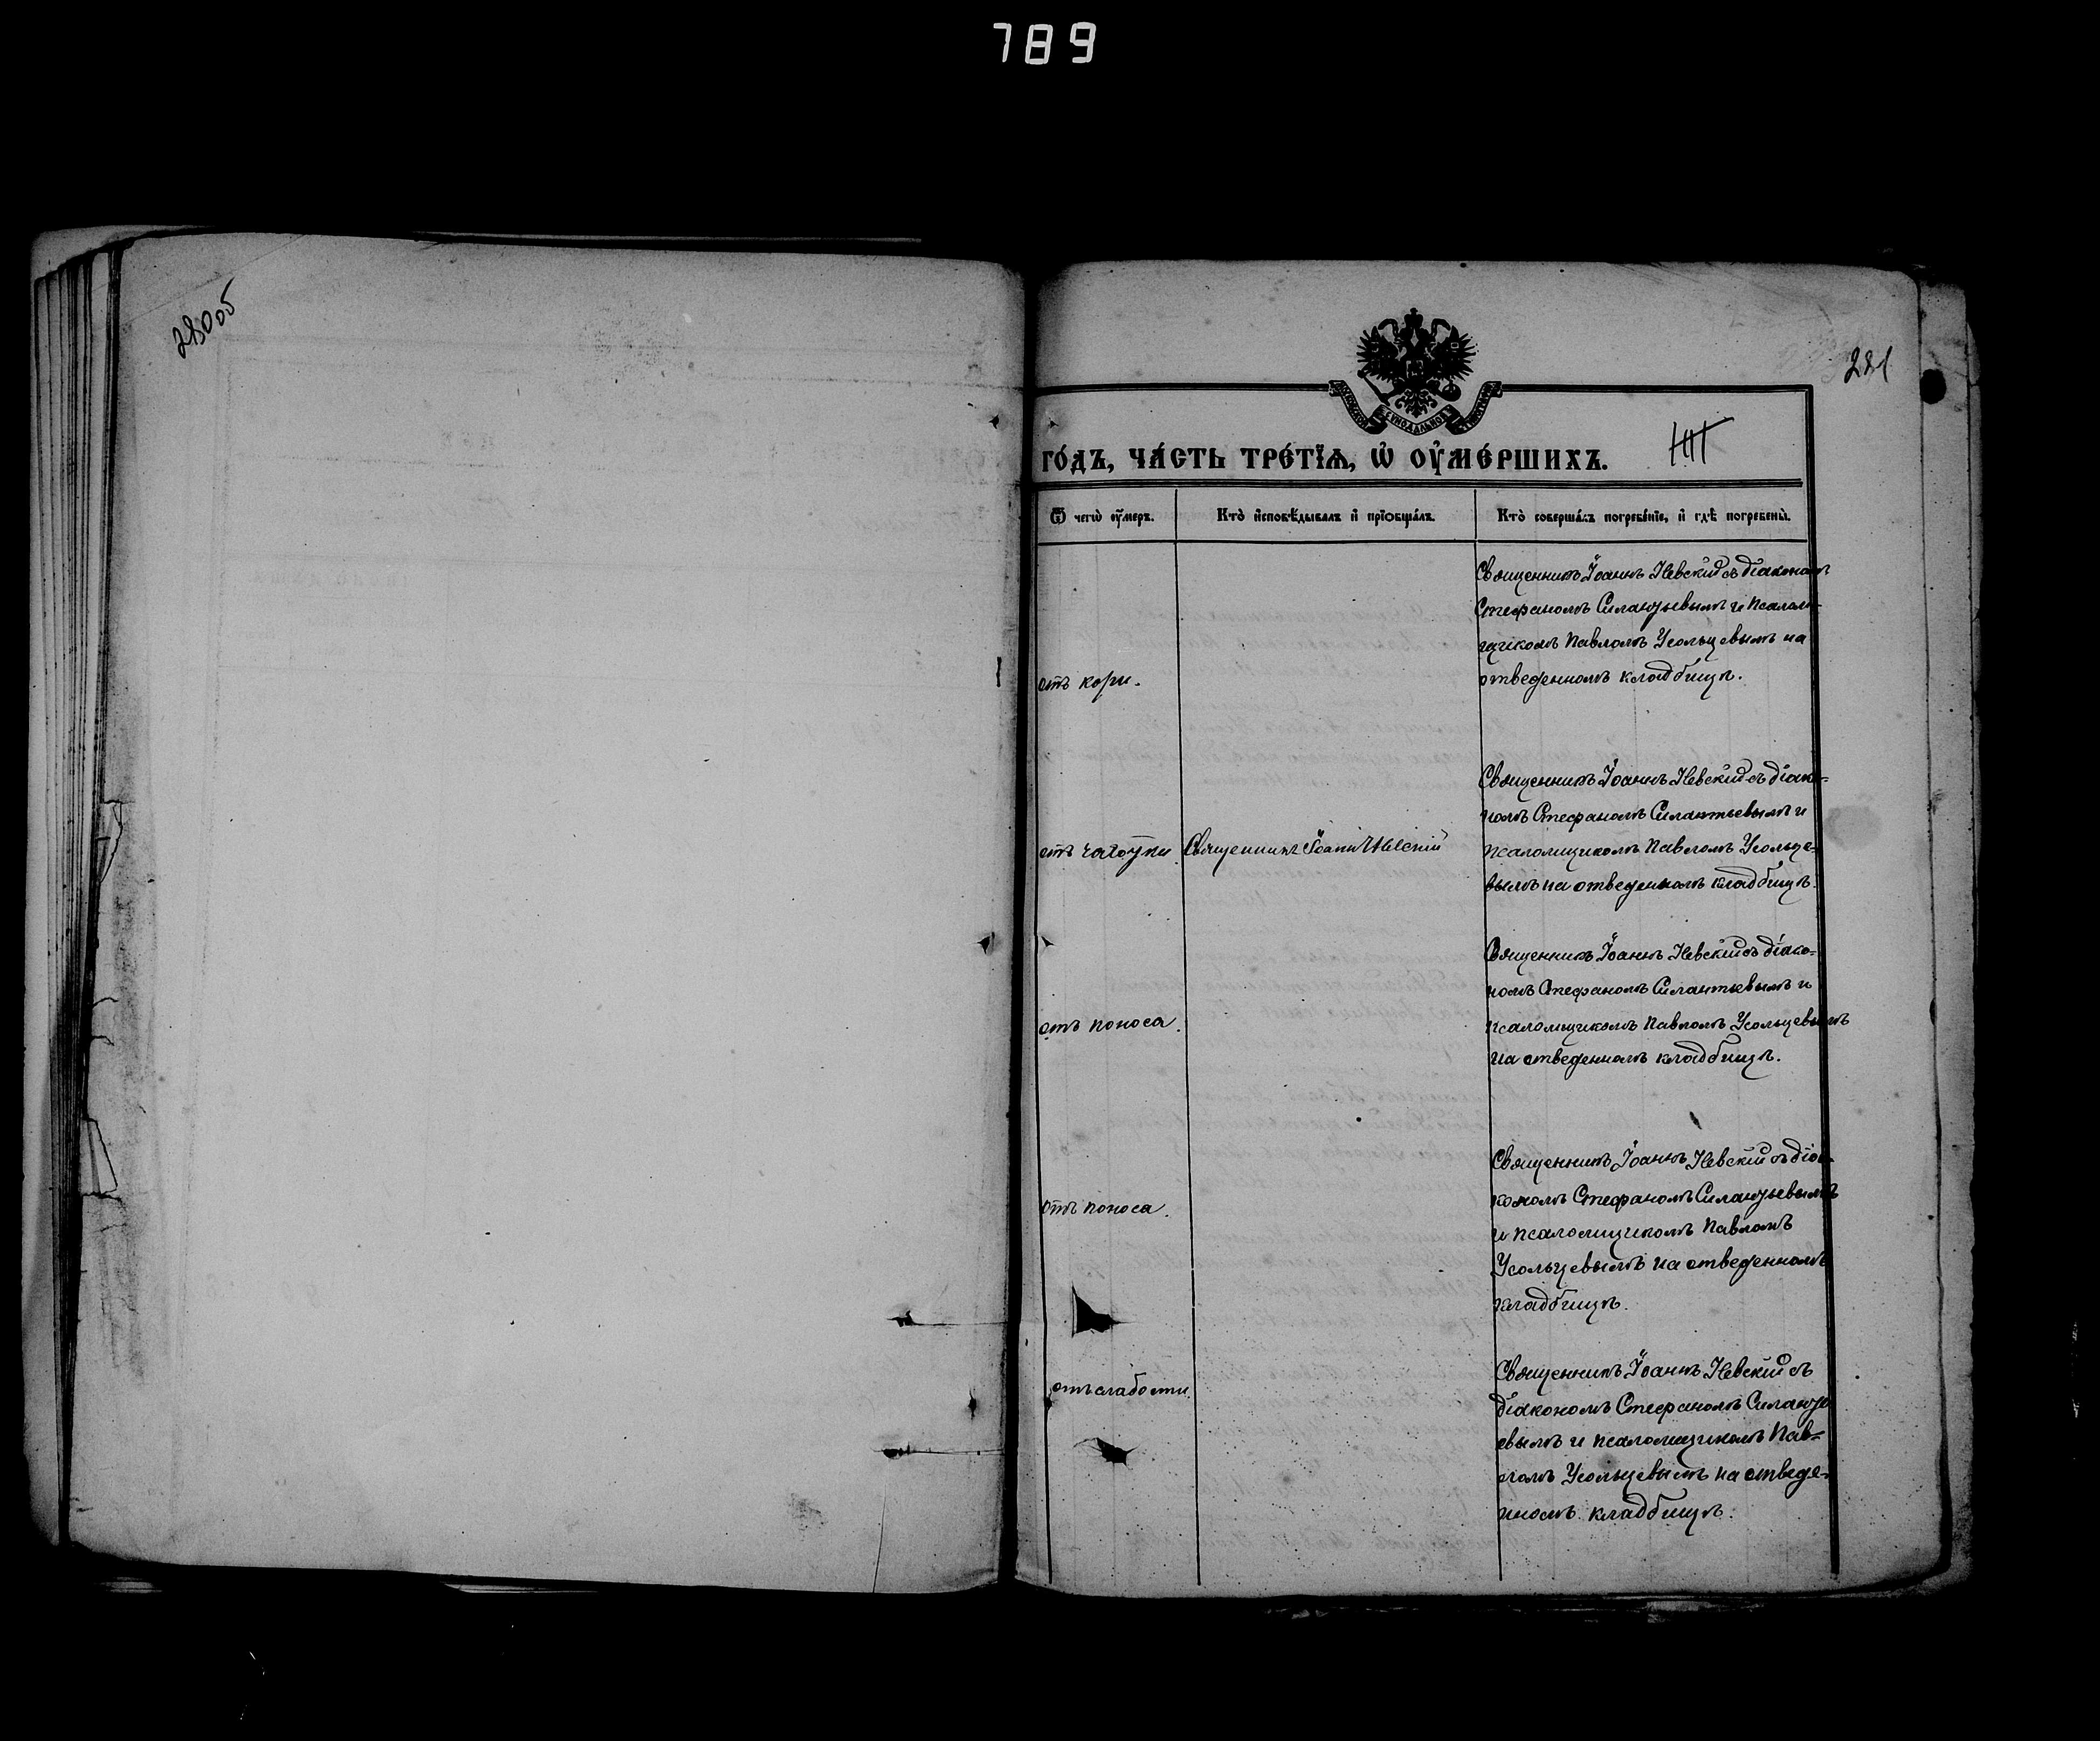 789
280об
281
ГО́ДЪ, ЧА́СТЬ ТРЕ́ТЇѦ, Ѡ҆ ОУ҆МЕ́РШИХЪ.
Ѿ чегѡ̀ оу҆́меръ.
Кто̀ и҆сповѣ́дывалъ и҆ прїѡбща́лъ.
Кто̀ соверша́лъ погребе́нїе, и҆ гдѣ̀ погребены̀.
отъ кори.
Священникъ Іоаннъ Невскій съ діакономъ
Стефаномъ Силантьевымъ и псалом-
щикомъ Павломъ Усольцевымъ на
отведенномъ кладбищѣ.
отъ чахотки
Священникъ Іоаннъ Невскій
Священникъ Іоаннъ Невскій съ діако-
номъ Стефаномъ Силантьевымъ и
псаломщикомъ Павломъ Усольце-
вымъ на отведенномъ кладбищѣ.
отъ поноса.
Священникъ Іоаннъ Невскій съ діако-
номъ Стефаномъ Силантьевымъ и
псаломщикомъ Павломъ Усольцевымъ
на отведенномъ кладбищѣ.
отъ поноса.
Священникъ Іоаннъ Невскій съ діа-
кономъ Стефаномъ Силантьевымъ
и псаломщикомъ Павломъ
Усольцевымъ на отведенномъ
кладбищѣ.
отъ слабости.
Священникъ Іоаннъ Невскій съ
діакономъ Стефаномъ Силанть
евымъ и псаломщикомъ Пав-
ломъ Усольцевымъ на отведе-
нномъ кладбищѣ.